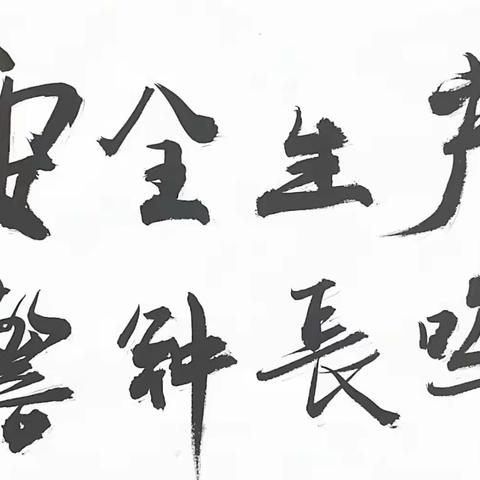 安全生产
警钟長鸣